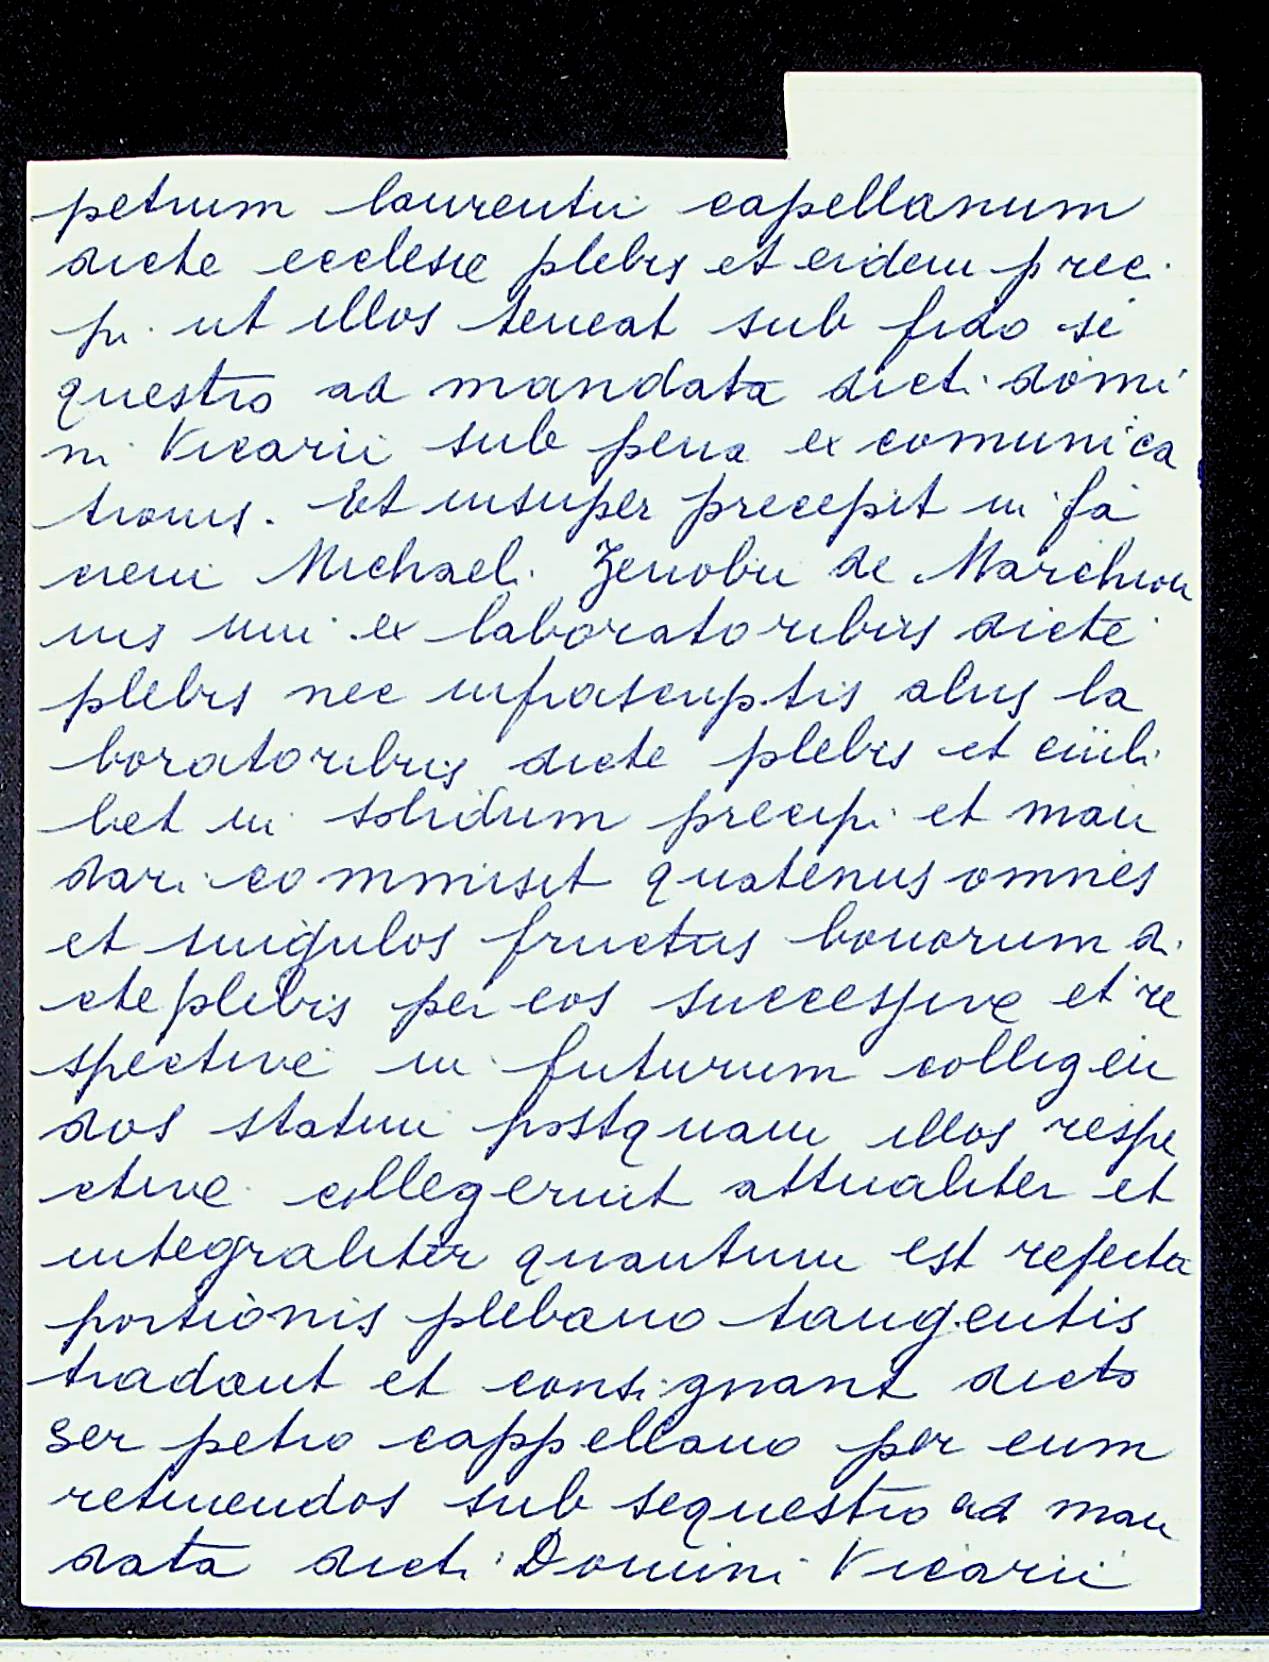 petrum laurentii capellanum
dicte ecclesie plebis et eidem preci
pi ut illos teneat sub fido se
questro ad mandata dicti domi
ni Vicarii sub pena excomunica
tionis. Et insuper precepit in fa
ciem Michaeli Zenobii de Marchion
nis uni ex laboratoribus dicte
plebis nec infrascriptis aliis la
boratoribus dicte plebis et cuili
bet in solidum precipi et man
dari commisit quatenus omnes
et singulos fructus bonorum di
cte plebis per eos successive et re
spective in futurum colligen
dos statim postquam illos respe
ctive collegerint attualiter et
integraliter quantum est refecta
portionis plebano tangentis
tradant et consignant dicto
ser petro cappellano per eum
retinendos sub sequestro ad man
data dicti Domini Vicarii